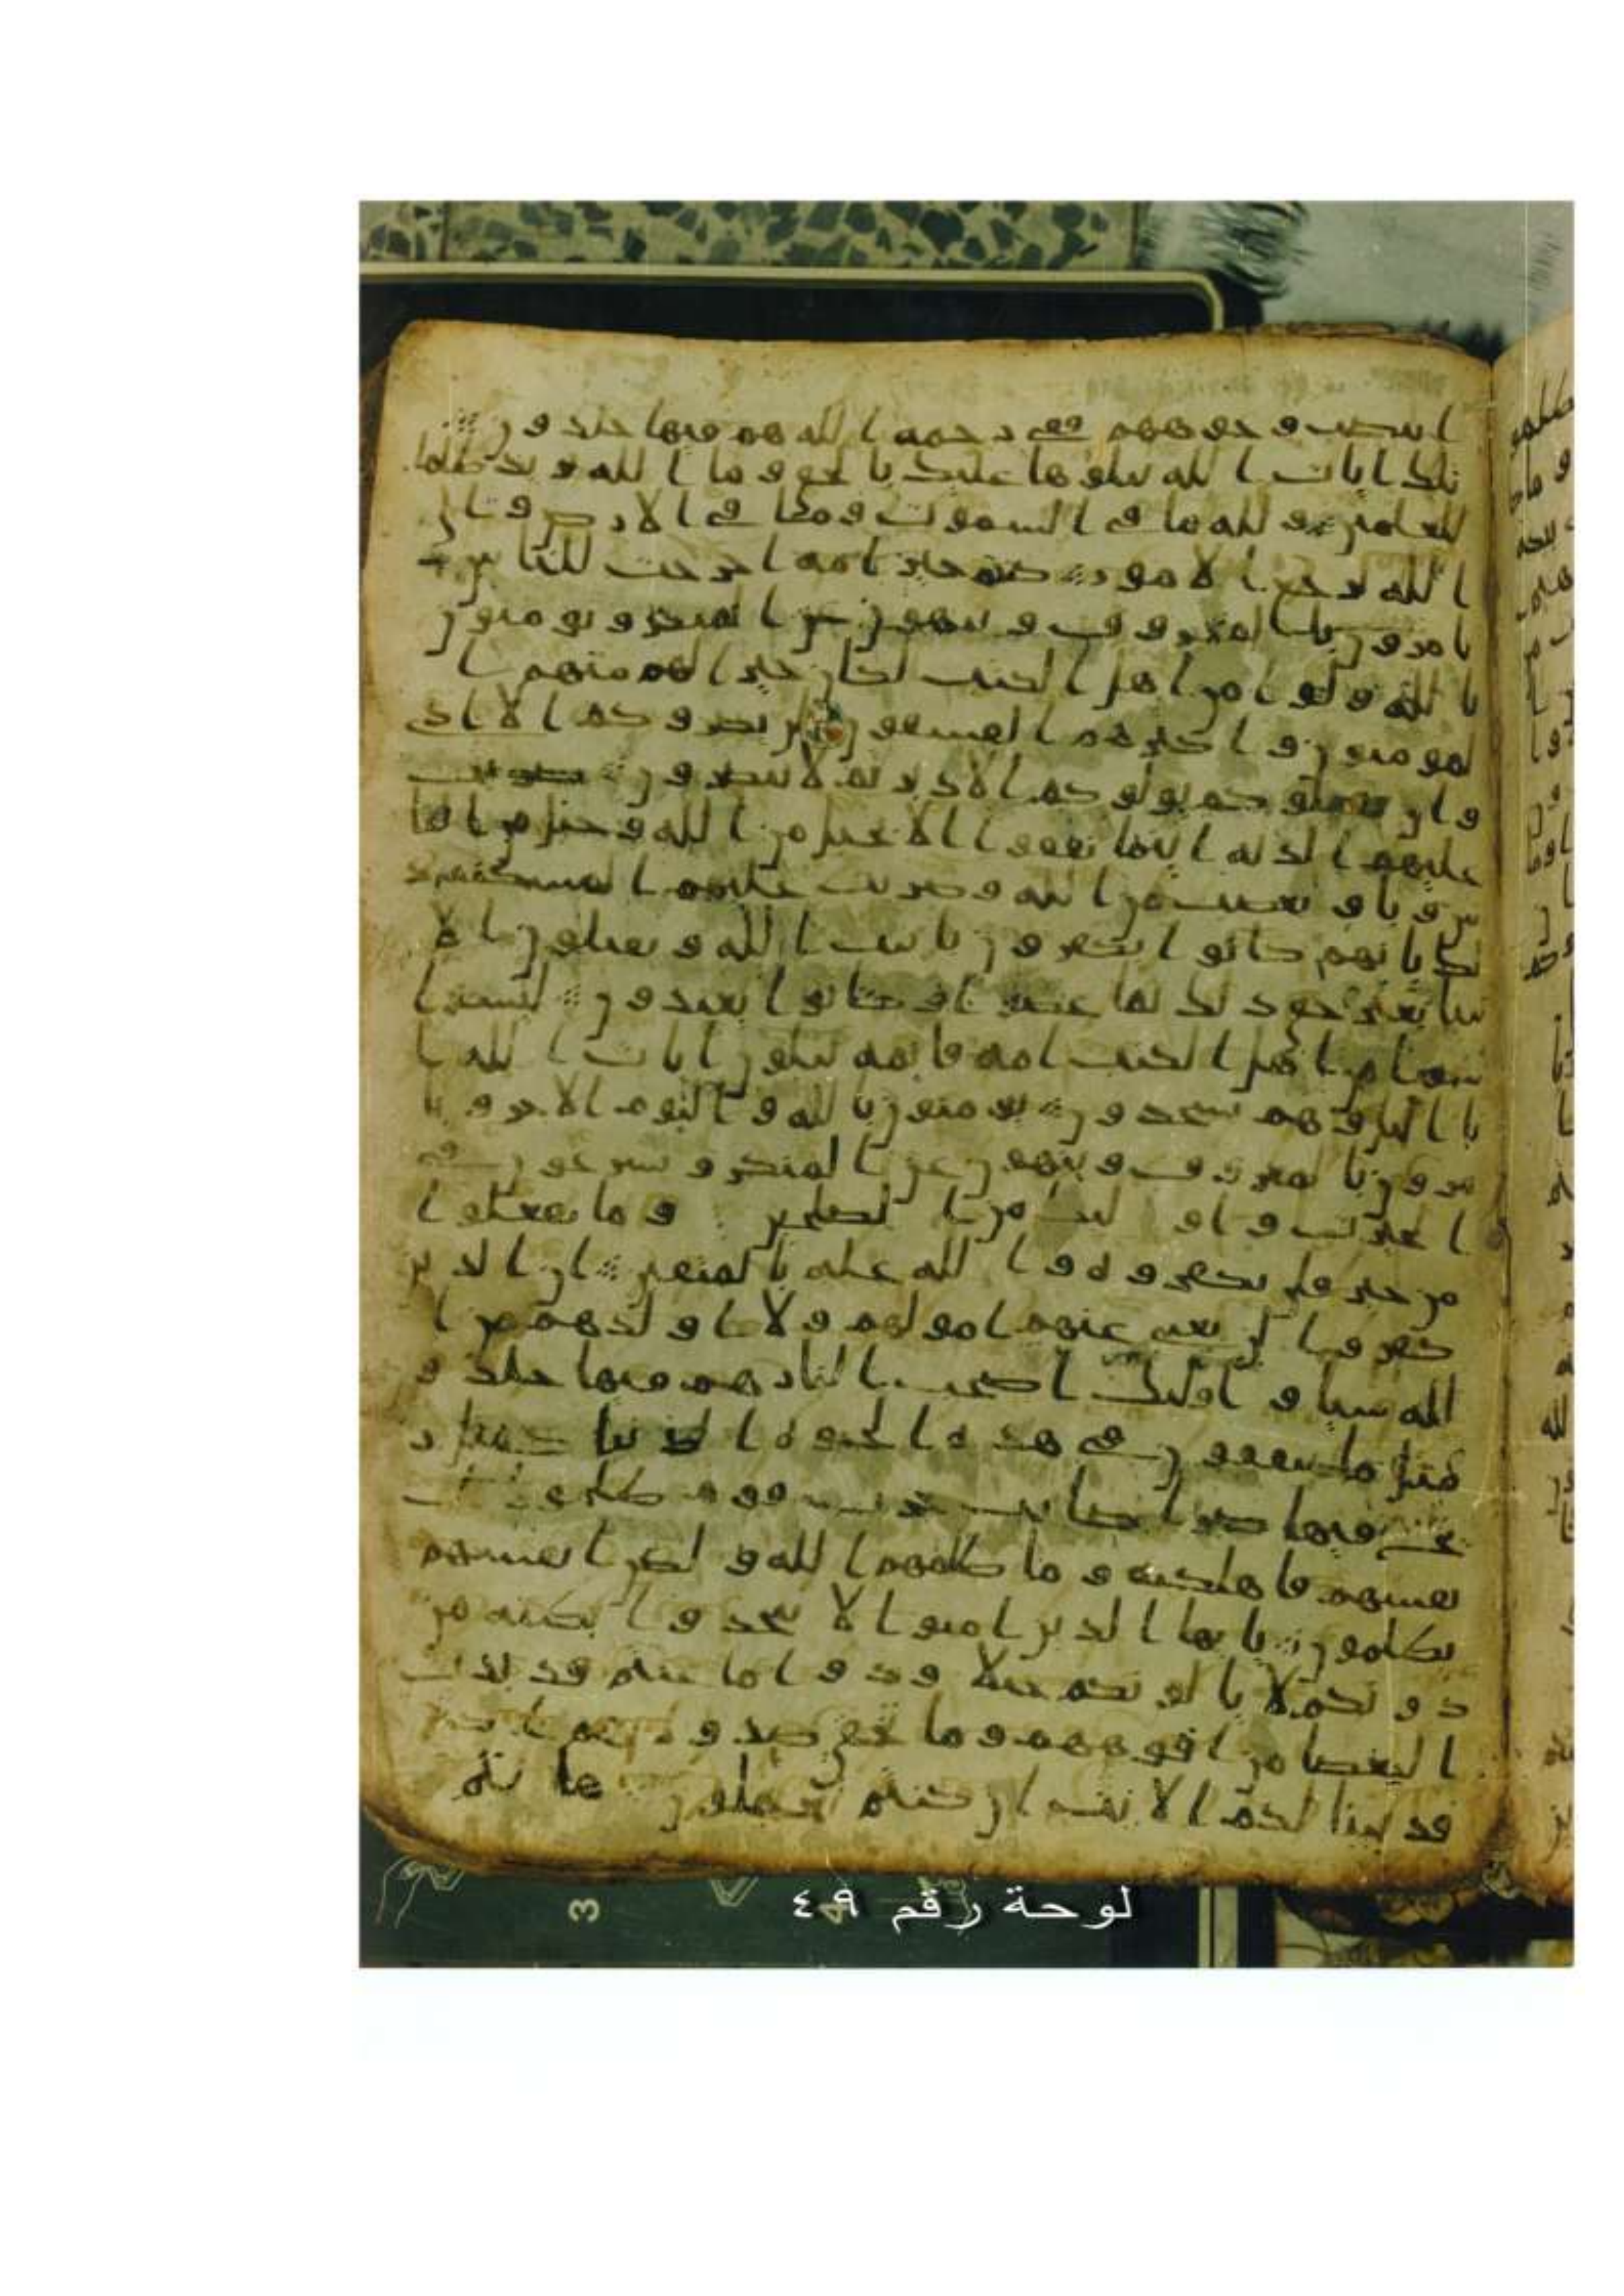 ابيضت وجوههم ففي رحمة الله هم فيها خلدون
تلك ايات الله نتلوها عليك بالحق وما الله يريد ظلما
للعلمين ولله ما في السموت وما في الارض والى
الله ترجع الامور كنتم خير امة اخرجت للناس
تامرون بالمعروف وتنهون عن المنكر وتومنون
بالله ولو امن اهل الكتب لكان خيرا لهم منهم ا
لمومنون واكثرهم الفسقون لن يضروكم الا اذى
وان يقتلوكم يولوكم الادبر ثم لا ينصرون ضربت
عليهم الذلة اينما ثقفوا الا بحبل من الله وحبل من النا
س وباو بغضب من الله وضربت عليهم المسكنة
ذلك بانهم كانوا يكفرون بايت الله ويقتلون الا
نبيا بغير حق ذلك بما عصوا وكانوا يعتدون ليسوا
سوا من اهل الكتب امة قايمة يتلون ايات الله ا
نا اليل وهم يسجدون يومنون بالله واليوم الاخر ويا
مرون بالمعروف وينهون عن المنكر ويسرعون في
الخيرت واوليك من الصلحين وما يفعلوا
من خير فلن يكفروه والله عليم بالمتقين ان الذين
كفروا لن تغني عنهم امولهم ولا اولدهم من ا
لله شيا واوليك اصحب النار هم فيها خلدو
ن مثل ما ينفقون في هذه الحيوة الدنيا كمثل ر
يح فيها صر اصابت حرث قوم ظلموا ا
نفسهم فاهلكته وما ظلمهم الله ولكن انفسهم
يظلمون يايها الذين امنوا لا تتخذوا بطنة من
دونكم لا يالونكم خبلا ودوا ما عنتم قد بدت
البغضا من افوههم وما تخفي صدورهم اكبر
قد بينا لكم الايت ان كنتم تعقلون ها نتم
لوحة رقم ٤٩
3